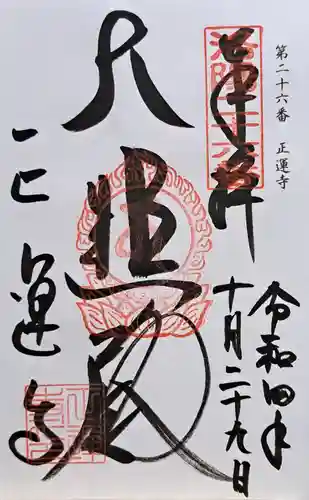 第二十六番 正運寺
奉拝
令和四年
十月二十九日
大悲殿
正運寺